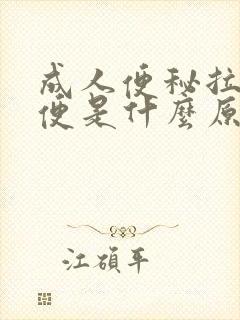 成人便秘拉
便是什麼原
江碩平